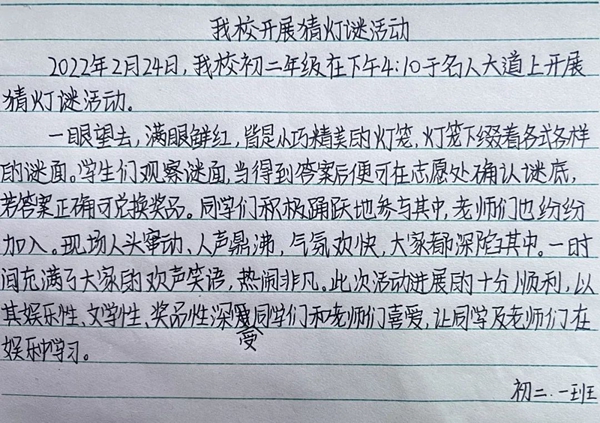 我校开展猜灯谜活动
2022年2月24日，我校初二年级在下午4:10于名人大道上开展
猜灯谜活动。
一眼望去，满眼鲜红，皆是小巧精美的灯笼，灯笼下缀着各式各样
的谜面。学生们观察谜面，当得到答案后便可在志愿处确认谜底，
若答案正确可兑换奖品。同学们积极踊跃地参与其中，老师们也纷纷
加入。现场人头窜动、人声鼎沸，气氛欢快，大家都深陷其中。一时
间充满了大家的欢声笑语，热闹非凡。此次活动进展的十分顺利，以
其娱乐性、文学性、奖品性深同学们和老师们喜爱，让同学及老师们在
受
娱乐中学习。
初二.一班